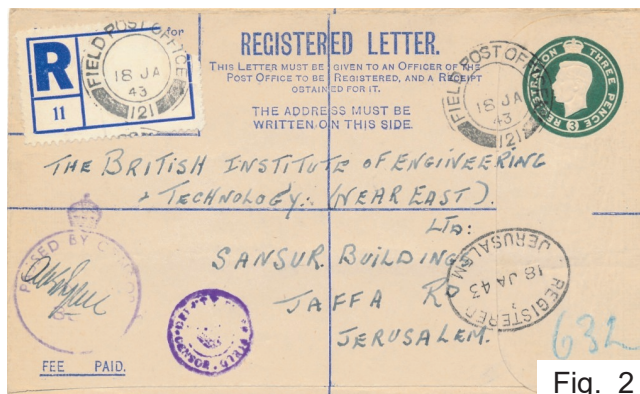 for
R
11
FIELD POST OFFICE
18 JA
43
121
REGISTERED LETTER.
THIS LETTER MUST BE GIVEN TO AN OFFICER OF THE
POST OFFICE TO BE REGISTERED, AND A RECEIPT
OBTAINED FOR IT.
THE ADDRESS MUST BE
WRITTEN ON THIS SIDE.
FIELD POST OFFICE
18 JA
43
121
REGISTRATION THREE PENCE
3
THE BRITISH INSTITUTE OF ENGINEERING
& TECHNOLOGY. (NEAR EAST).
LTD:
SANSUR BUILDING
JAFFA RD
JERUSALEM.
PASSED BY CENSOR
REGISTERED
18 JA 43
JERUSALEM
FIELD
FEE PAID.
632
Fig. 2